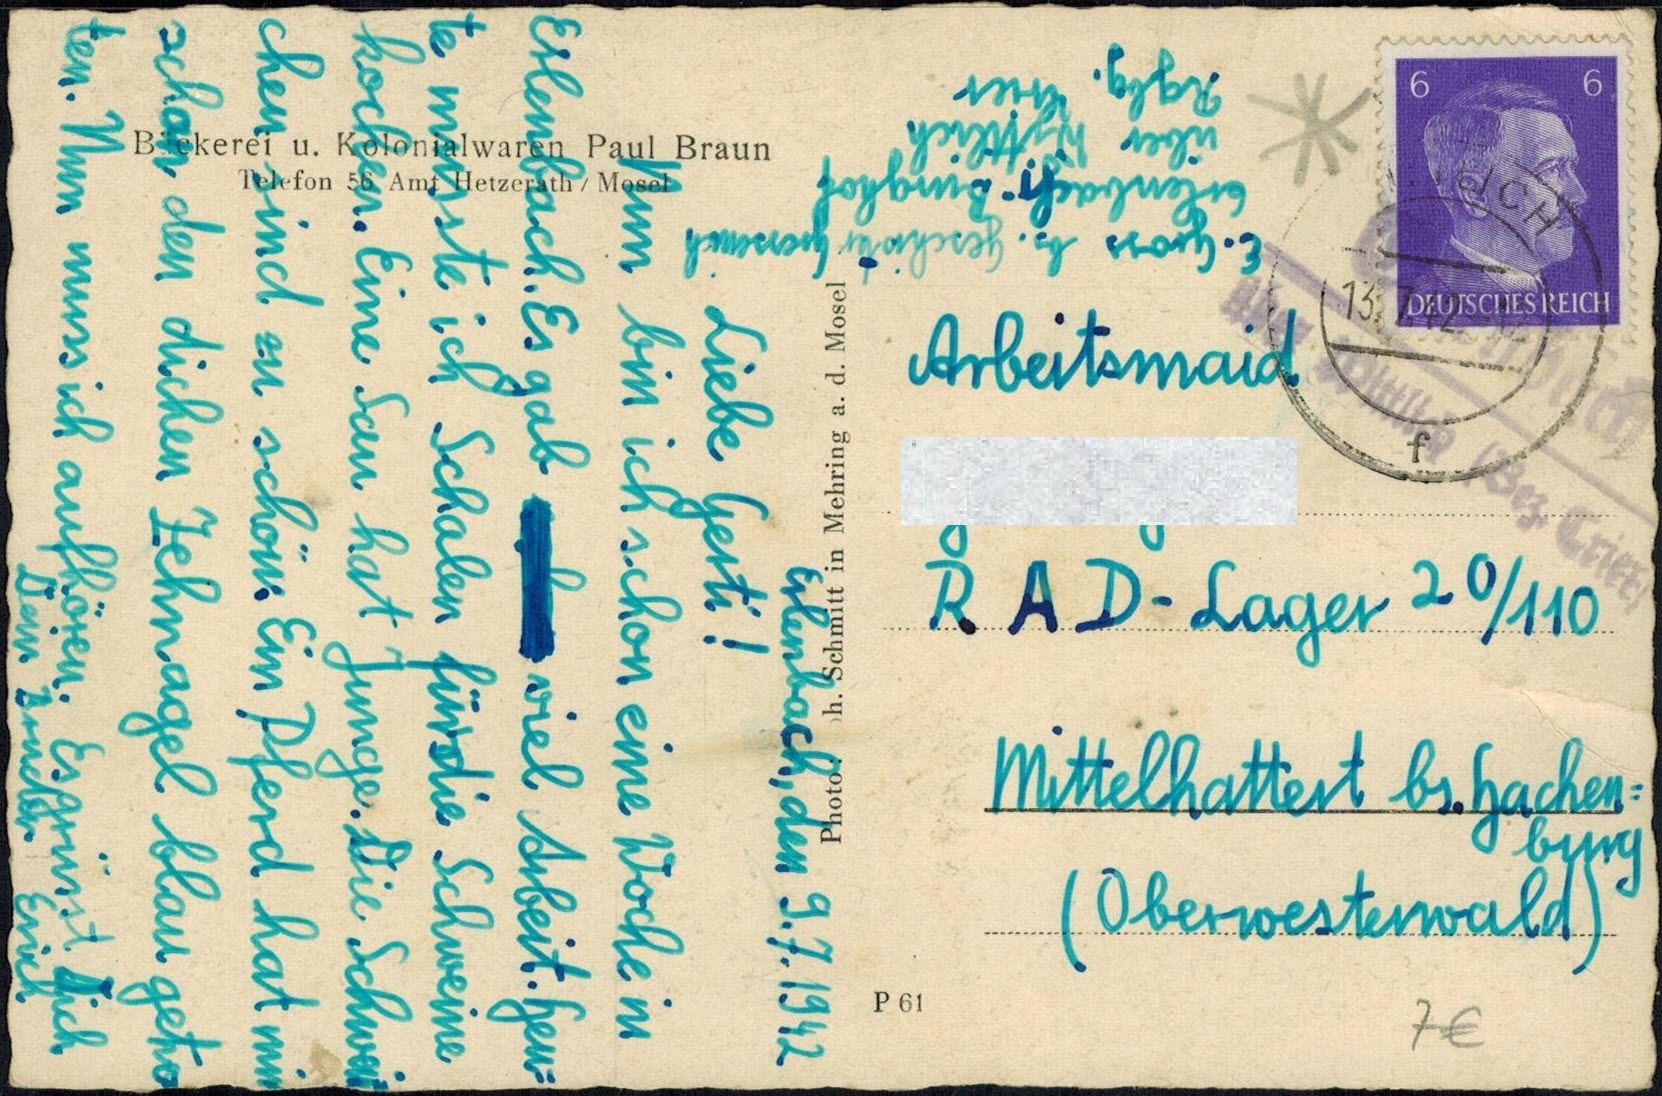 Bäckerei u. Kolonialwaren Paul Braun
Telefon 56 Amt Hetzerath / Mosel
Erlenbach, den 9.7.1942
Liebe Gerti!
Nun bin ich schon eine Woche in
Erlenbach. Es gab viel Arbeit. Heu=
te musste ich Schalen für die Schweine
kochen. Eine Sau hat Junge. Die Schwei
chen sind zu schön. Ein Pferd hat mir
schon den dicken Zehnagel blau getre
ten. Nun muss ich aufhören. Es grüsst Dich
Dein Bruder Erich
Photo: h. Schmitt in Mehring a. d. Mosel
E. Gross b. Geschwister
Erlenbach Burghof
über Wittlich
Rgbz. Trier
6 6
DEUTSCHES REICH
13.7.42
f
über Wittlich (Bez. Trier)
Arbeitsmaid
R A D - Lager 20/110
Mittelhattert bs. Hachen=
burg
(Oberwesterwald)
P 61
7€